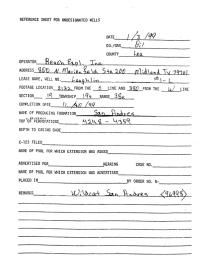 REFERENCE SHEET FOR UNDESIGNATED WELLS
DATE 1/3/99
OIL/GAS Oil
COUNTY Lea
OPERATOR Beach Expl. Inc
ADDRESS 800 N Marienfeld Ste 200 Midland Tx 79701
LEASE NAME, WELL NO. Laughlin
FOOTAGE LOCATION 2132 FROM THE S LINE AND 380 FROM THE W LINE
SECTION 19 TOWNSHIP 19s RANGE 38e
COMPLETION DATE
NAME OF PRODUCING FORMATION San Andres
TOP OF PERFORATIONS 4248 - 4359
DEPTH TO CASING SHOE
C-123 FILED
NAME OF POOL FOR WHICH EXTENSION WAS ASKED
ADVERTISED FOR HEARING CASE NO.
NAME OF POOL FOR WHICH EXTENSION WAS ADVERTISED
PLACED IN BY ORDER NO. R-
REMARKS Wildcat San Andres